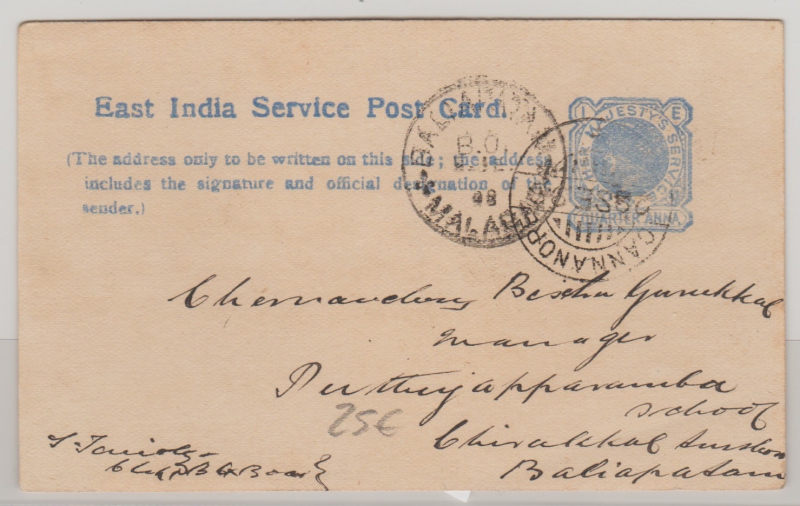 East India Service Post Card.
(The address only to be written on this side; the address
includes the signature and official designation of the
sender.)
I E
HER MAJESTY'S SERVICE
QUARTER ANNA
BALIAPATAM
B.O.
98
MALABAR
CANNANORE
Gurukkal
Manager
Puthiyapparamba
School
Chirakkal
Baliapatam
25€